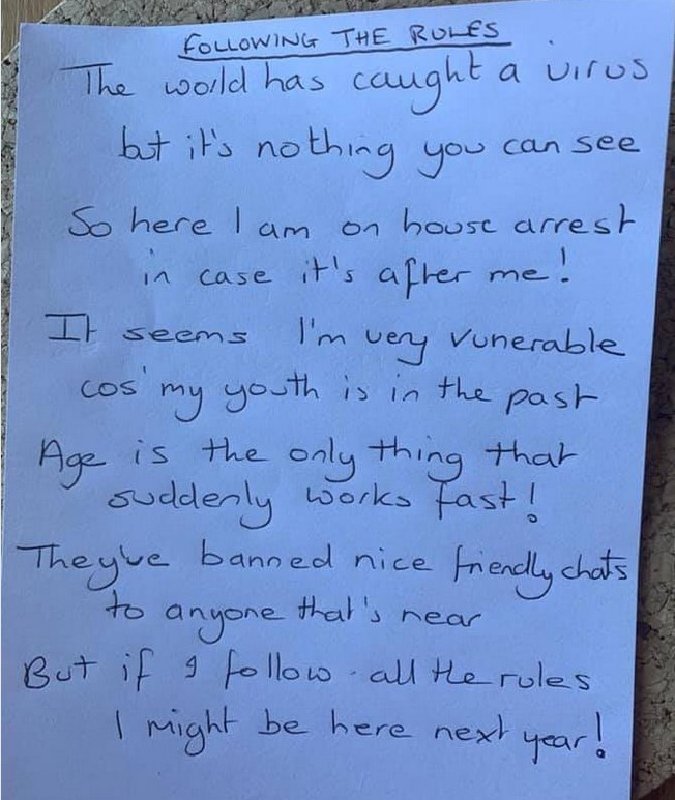 FOLLOWING THE RULES
The world has caught a virus
but it's nothing you can see
So here I am on house arrest
in case it's after me!
It seems I'm very vunerable
cos' my youth is in the past
Age is the only thing that
suddenly works fast!
They've banned nice friendly chats
to anyone that's near
But if I follow all the rules
I might be here next year!